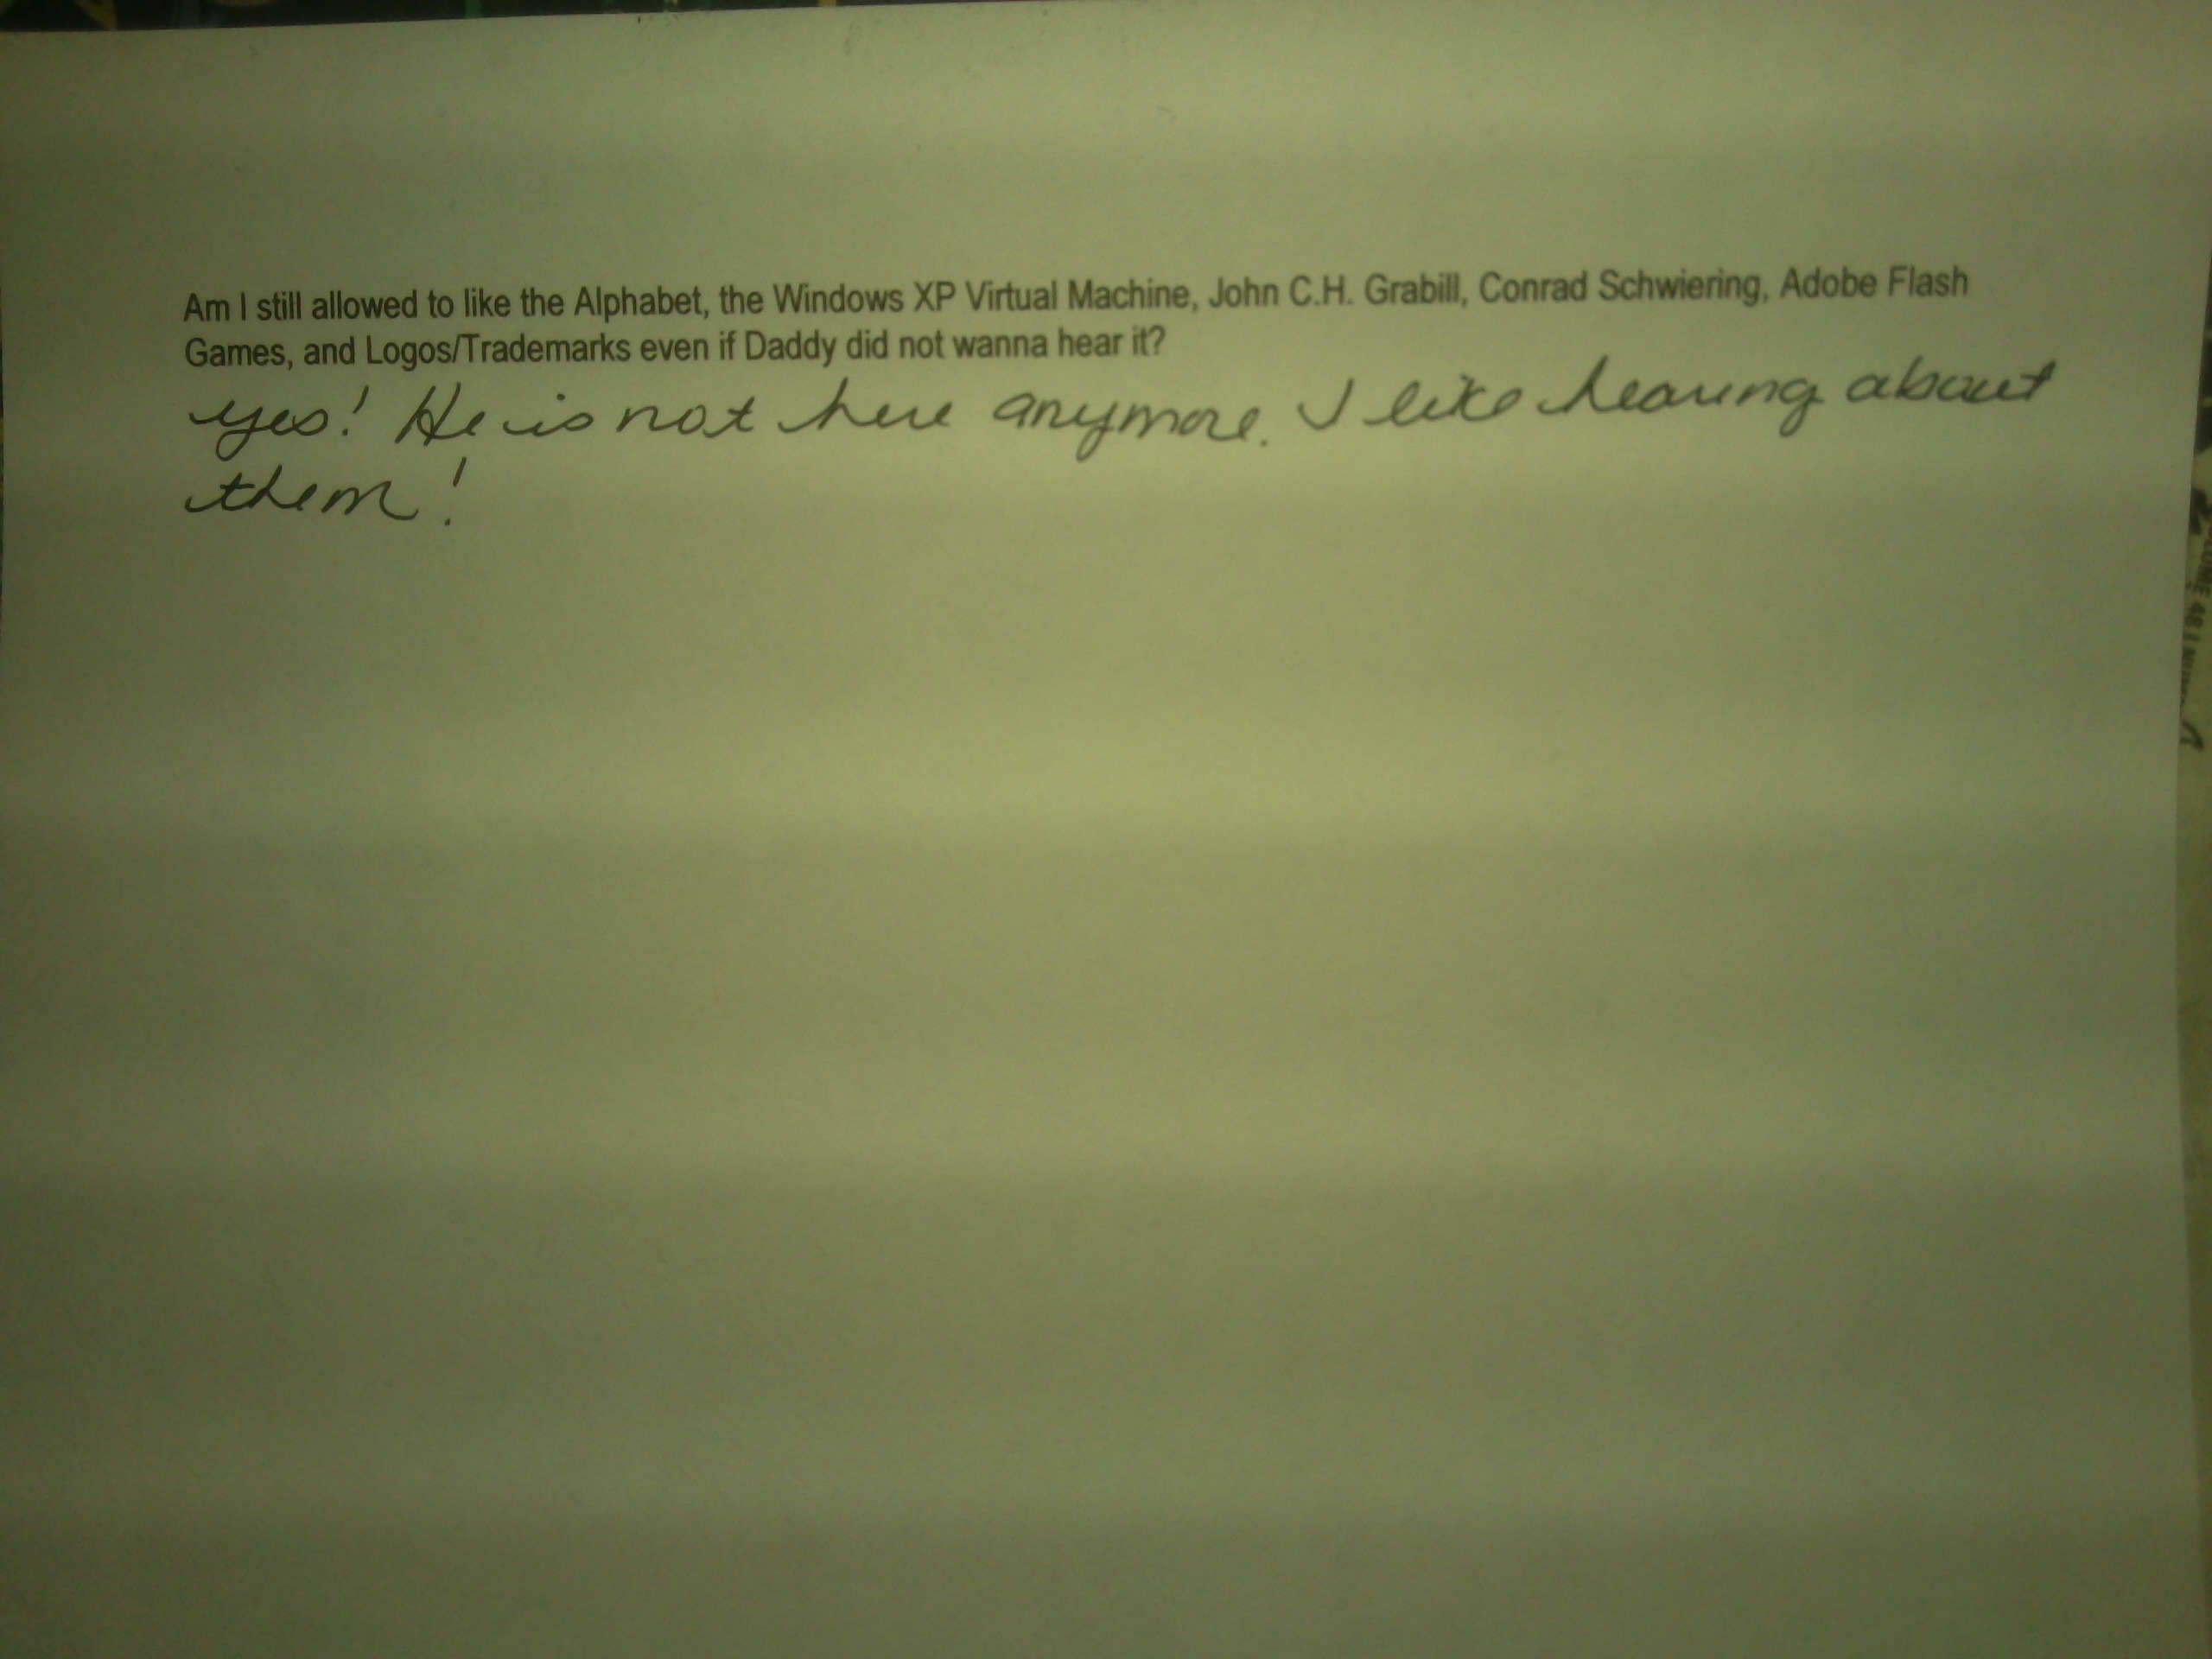 Am I still allowed to like the Alphabet, the Windows XP Virtual Machine, John C.H. Grabill, Conrad Schwiering, Adobe Flash
Games, and Logos/Trademarks even if Daddy did not wanna hear it?
yes! He is not here anymore. I like hearing about
them!